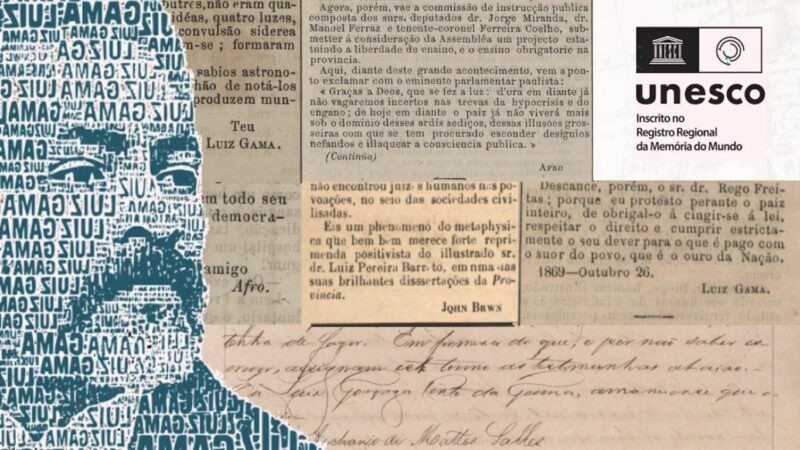 outres, não eram qua-
idéas, quatro luzes,
convulsão siderea
en-se ; formaram
sabios astrono-
hão de notál-os
produzem mun-
Teu
LUIZ GAMA.
om todo seu
democra-
amigo
Afro.
Agora, porém, vae a commissão de instrucção publica
composta dos snrs. deputados dr. Jorge Miranda, dr.
Manoel Ferraz e tenente-coronel Ferreira Coelho, sub-
metter á consideração da Assembléa um projecto esta-
tuindo a liberdade de ensino, e o ensino obrigatorio na
provincia.
Aqui, diante deste grande acontecimento, vem a pon-
to exclamar com o eminente parlamentar paulista:
« Graças a Deos, que se fez a luz: d'ora em diante já
não vagaremos incertos nas trevas da hypocrisia e do
engano; de hoje em diante o paiz já não viverá mais
sob o dominio desses ardís sediços, dessas illusões gros-
seiras com que se tem procurado esconder designios
nefandos e illaquear a consciencia publica. »
(Contiúa)
AFRO
não encontrou juizes humanos nas po-
voações, no seio das sociedades civi-
lisadas.
Eis um phenomeno de metaphysi-
ca que bem bem merece forte repri-
menda positivista do illustrado sr.
dr. Luiz Pereira Barreto, em uma das
suas brilhantes disssertações da Pro-
vincia.
JOHN BRWN
unesco
Inscrito no
Registro Regional
da Memória do Mundo
Descance, porém, o sr. dr. Rego Frei-
tas; porque eu protesto perante o paiz
inteiro, de obrigal-o á cingir-se á lei,
respeitar o direito e cumprir estricta-
mente o seu dever para o que é pago com
o suor do povo, que é o ouro da Nação.
1869—Outubro 26.
LUIZ GAMA.
de Em firmeza do que, e por não saber es-
crever, assignam este termo as testemunhas abaixo.
Eu Luiz Gonzaga Pinto da Gama, amanuense que o
de Mattos Salles
LUIZ GAMA